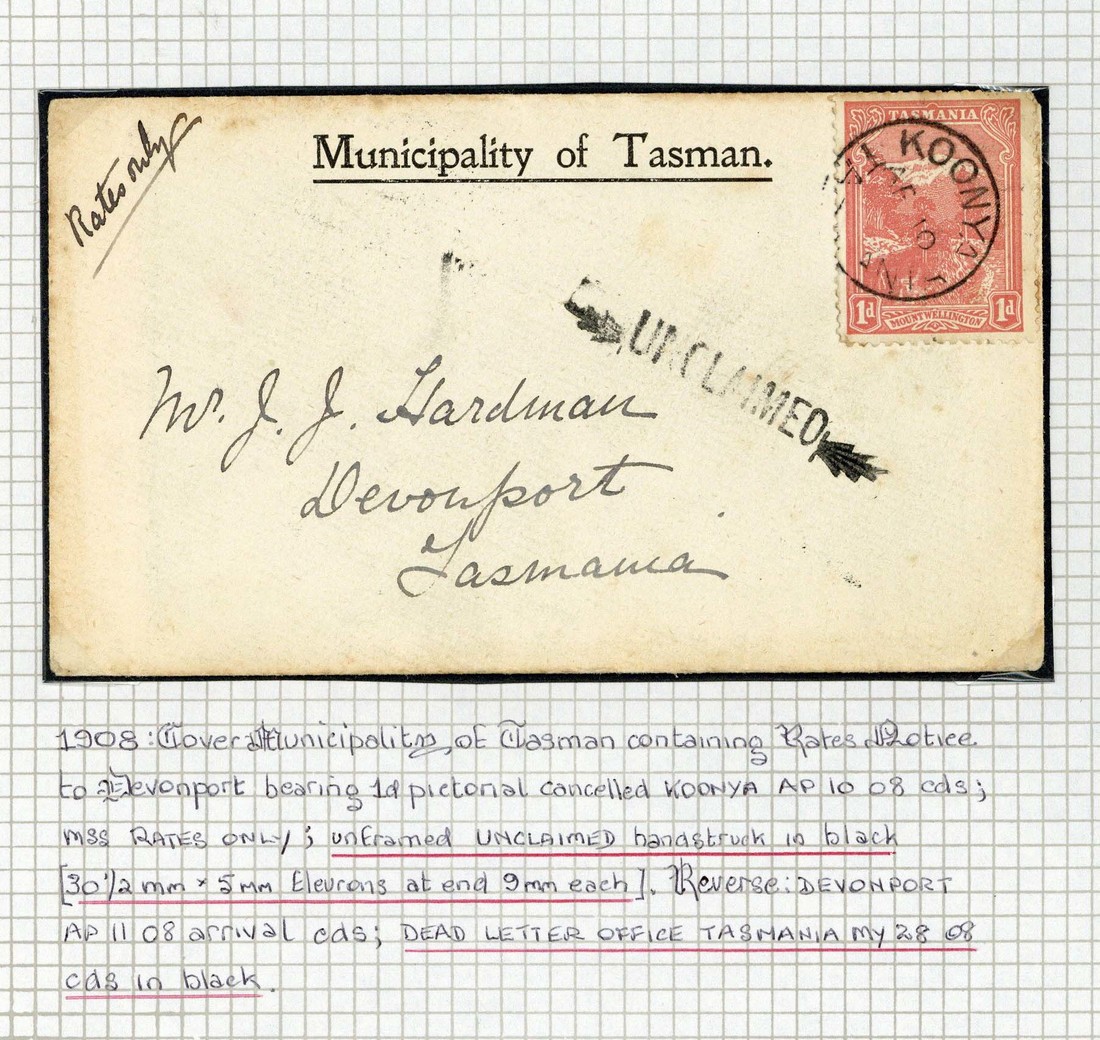 Rates only
Municipality of Tasman.
TASMANIA
KOONYA
AP 10
1d
MOUNT WELLINGTON
1d
UNCLAIMED
Mr. J. J. Hardman
Devonport
Tasmania
1908: Cover Municipality of Tasman containing Rates Notice
to Devonport bearing 1d pictorial cancelled KOONYA AP 10 08 cds;
MSS RATES ONLY; unframed UNCLAIMED handstruck in black
[30½mm × 5mm Eleurons at end 9mm each]. Reverse: DEVONPORT
AP 11 08 arrival cds; DEAD LETTER OFFICE TASMANIA MY 28 08
cds in black.